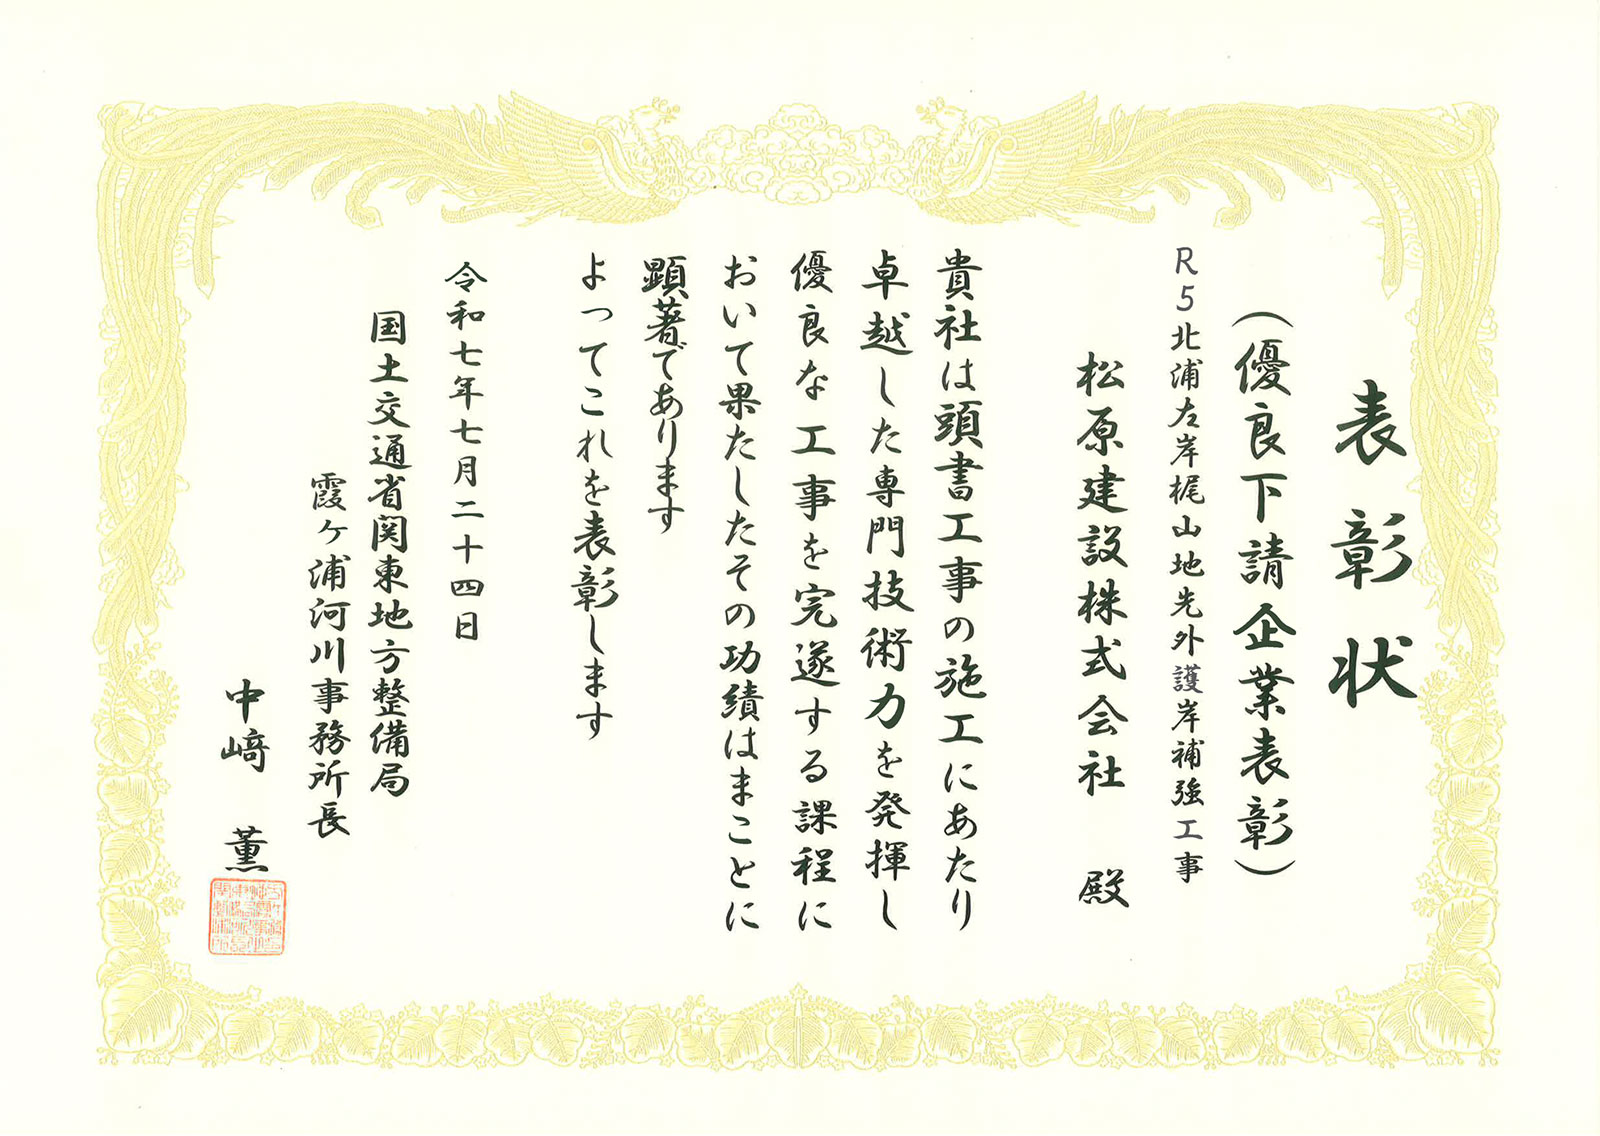 表彰状
(優良下請企業表彰)
R5北浦左岸梶山地先外護岸補強工事
松原建設株式会社 殿
貴社は頭書工事の施工にあたり
卓越した専門技術力を発揮し
優良な工事を完遂する課程に
おいて果たしたその功績はまことに
顕著であります
よってこれを表彰します
令和七年七月二十四日
国土交通省関東地方整備局
霞ヶ浦河川事務所長
中﨑 薫